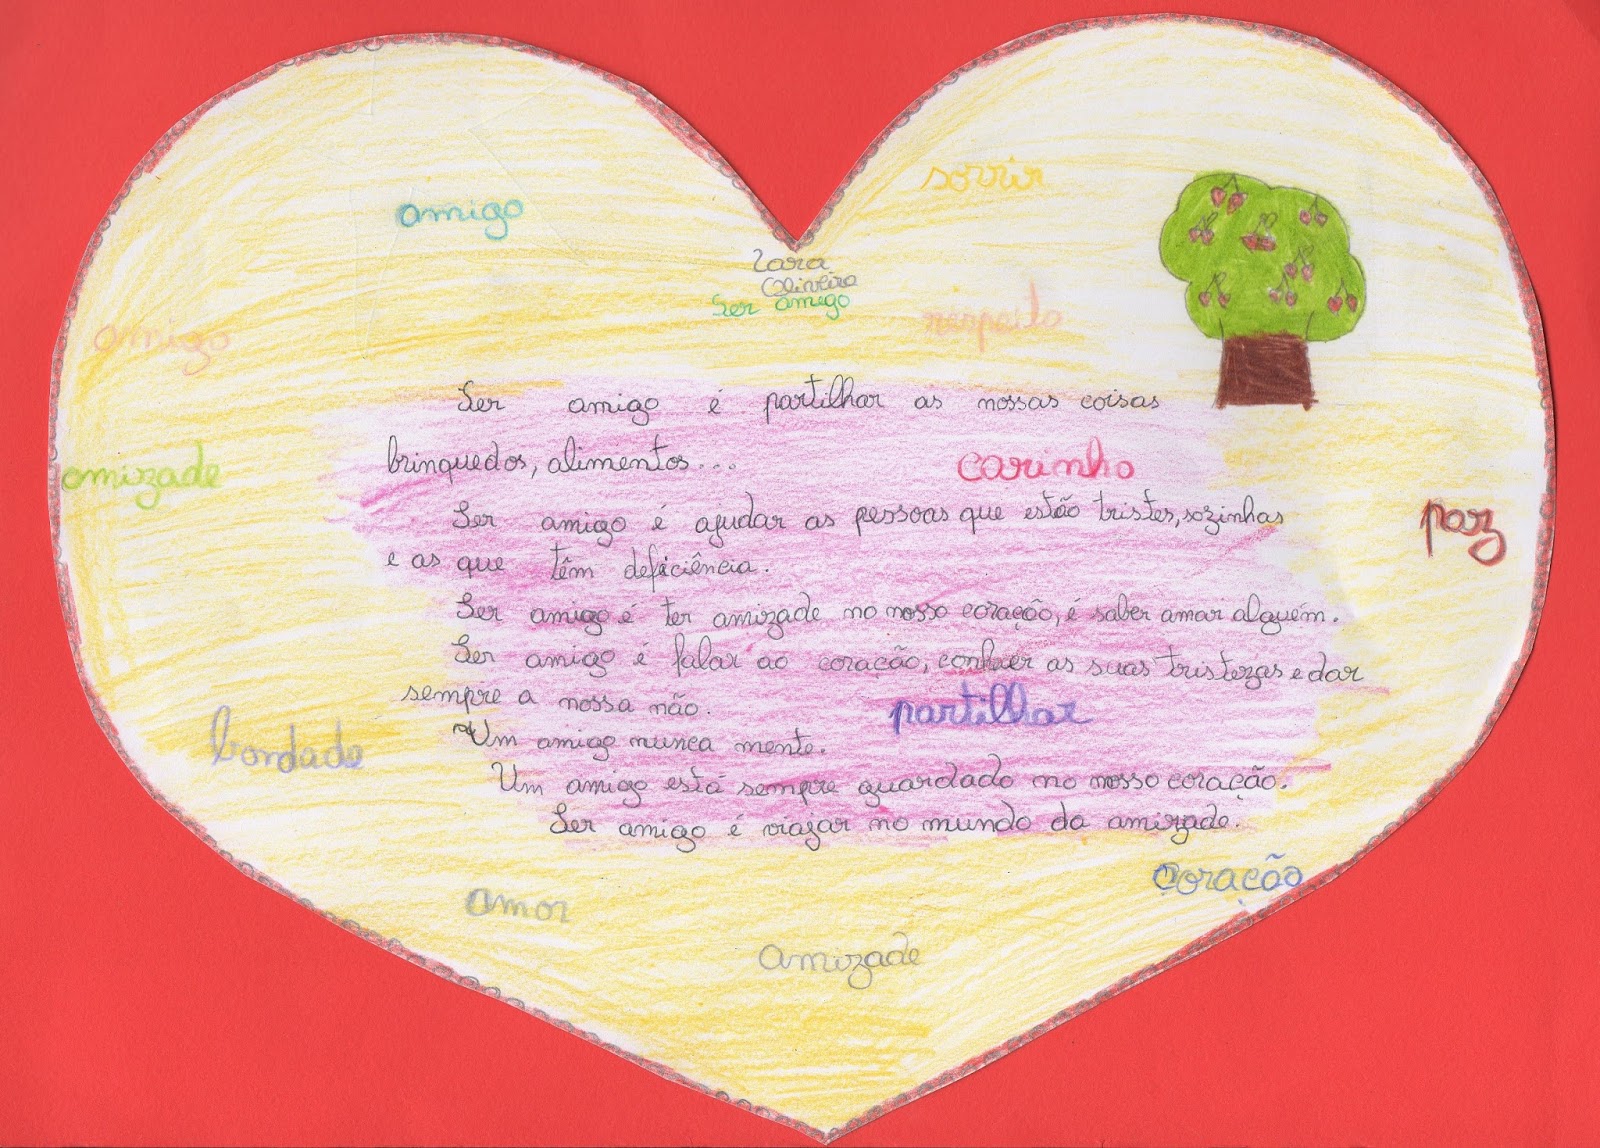 sorrir
amigo
Lara
Oliveira
Ser amigo
respeito
amigo
Ser amigo é partilhar as nossas coisas
brinquedos, alimentos...
carinho
amizade
Ser amigo é ajudar as pessoas que estão tristes, sozinhas
paz
e as que têm deficiência.
Ser amigo é ter amizade no nosso coração, é saber amar alguém.
Ser amigo é falar ao coração, conhecer as suas tristezas e dar
sempre a nossa mão.
partilhar
Um amigo nunca mente.
bondade
Um amigo está sempre guardado no nosso coração.
Ser amigo é viajar no mundo da amizade.
coração
amor
amizade